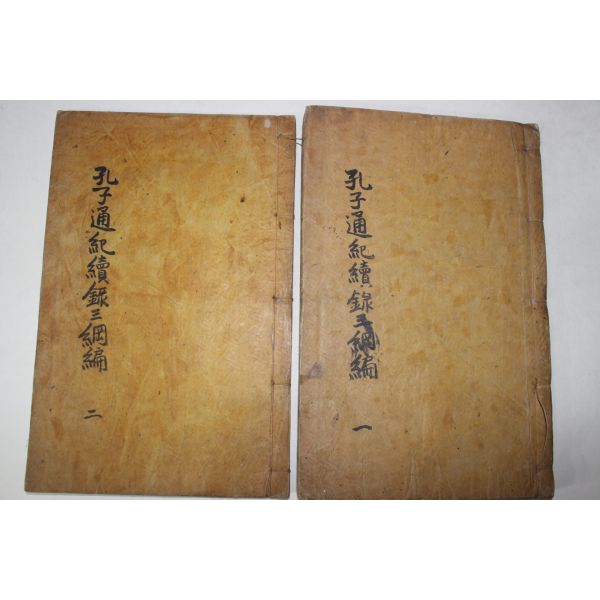 孔子通紀續錄三綱編
一
孔子通紀續錄三綱編
二